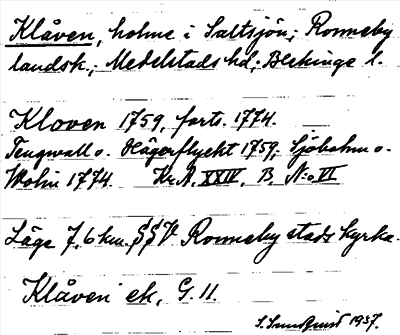 Klåven, holme i Saltsjön; Ronneby
landsk.; Medelstads hd; Blekinge l.
Kloven 1759, forts. 1774.
Tengwall o. Hägerflycht 1759; Sjöholm o.
Wolin 1774. Kr.A. XXIV, B. N:o VI
Läge 7,6 km. SSV Ronneby stads kyrka.
Klåven ek, G. 11.
S. Sundquist 1937.